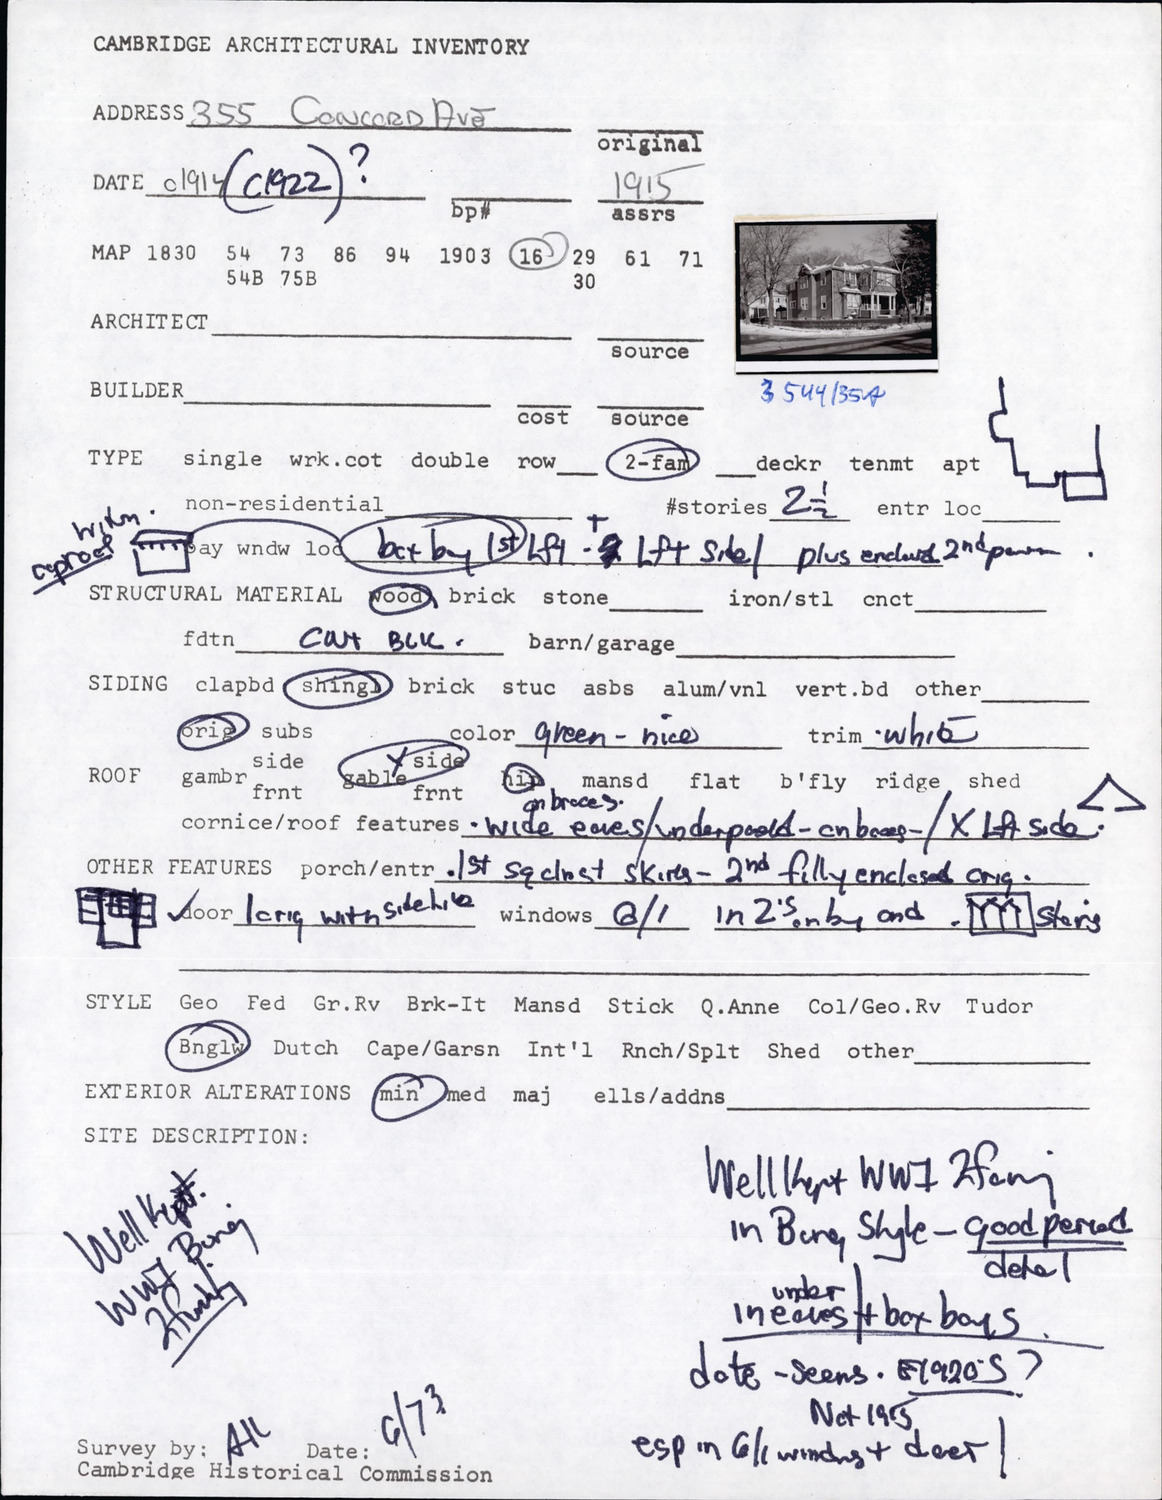 CAMBRIDGE ARCHITECTURAL INVENTORY
ADDRESS 355 CONCORD AVE
original
DATE c1914 (c1922)? 1915
bp# assrs
MAP 1830 54 73 86 94 1903 16 29 61 71
54B 75B 30
ARCHITECT
source
BUILDER
3544/35A
cost source
TYPE single wrk.cot double row 2-fam deckr tenmt apt
non-residential #stories 2½ entr loc
bay wndw loc box bay 1st Lft + Lft side/ plus enclosed 2nd
STRUCTURAL MATERIAL wood brick stone iron/stl cnct
fdtn BLK. barn/garage
SIDING clapbd shingl brick stuc asbs alum/vnl vert.bd other
orig subs color green - nice trim white
side side
ROOF gambr gable hip mansd flat b'fly ridge shed
frnt frnt
on braces.
cornice/roof features wide eaves/ / X Lft side.
OTHER FEATURES porch/entr 1st - 2nd fully enclosed orig.
door orig with sidelite windows 6/1 in 2's on bay and
STYLE Geo Fed Gr.Rv Brk-It Mansd Stick Q.Anne Col/Geo.Rv Tudor
Bnglw Dutch Cape/Garsn Int'l Rnch/Splt Shed other
EXTERIOR ALTERATIONS min med maj ells/addns
SITE DESCRIPTION:
Well Kept
WWI Bung
2family
Well Kept WWI 2family
in Bung Style - good period
detail
under
in eaves + box bays.
date - seems. E1920'S?
Not 1915
esp in 6/1 windows + door!
Survey by: Date: 6/73
Cambridge Historical Commission